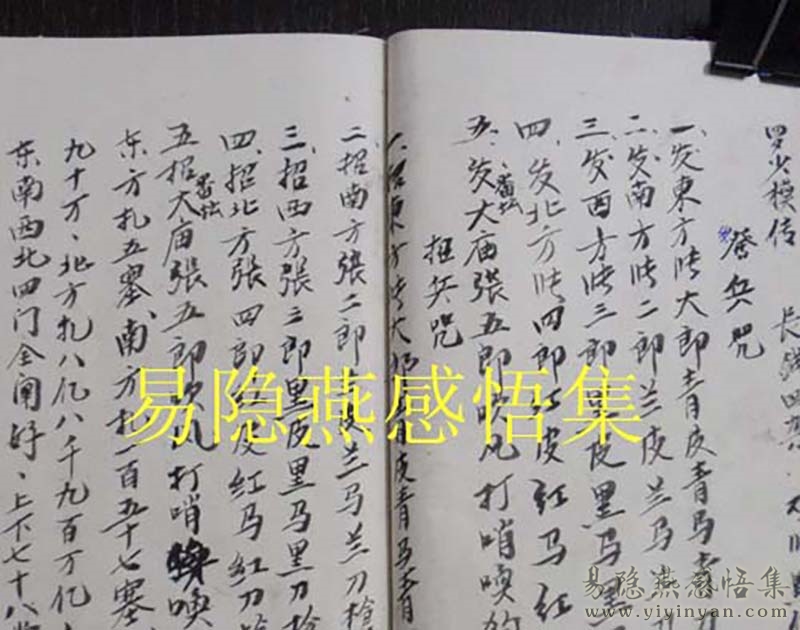 罗少模传
发兵咒
一、发東方张大郎青皮青马青
二、发南方张二郎兰皮兰马
三、发西方张三郎黑皮黑马黑
四、发北方张四郎红皮红马红
五、发大庙張五郎吹风打哨喚
番坛
招兵咒
一、招東方张大郎青皮青马青
二、招南方張二郎兰皮兰马兰刀枪
三、招西方張三郎黑皮里马黑刀枪
四、招北方張四郎红皮红马红刀
五招大庙張五郎吹风打哨喚
番坛
东方扎五寨、南方扎一百五十七寨
九十万、北方扎八亿八千九百万亿
东南西北四门全闹好、上下七十八
易隐燕感悟集
易隐燕感悟集
www.yiyinyan.com